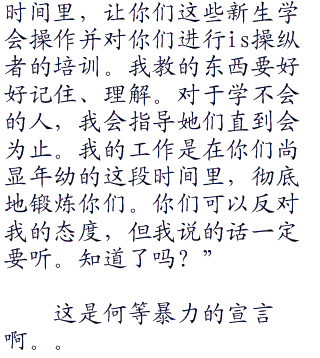 时间里，让你们这些新生学
会操作并对你们进行is操纵
者的培训。我教的东西要好
好记住、理解。对于学不会
的人，我会指导她们直到会
为止。我的工作是在你们尚
显年幼的这段时间里，彻底
地锻炼你们。你们可以反对
我的态度，但我说的话一定
要听。知道了吗？”
这是何等暴力的宣言
啊。。